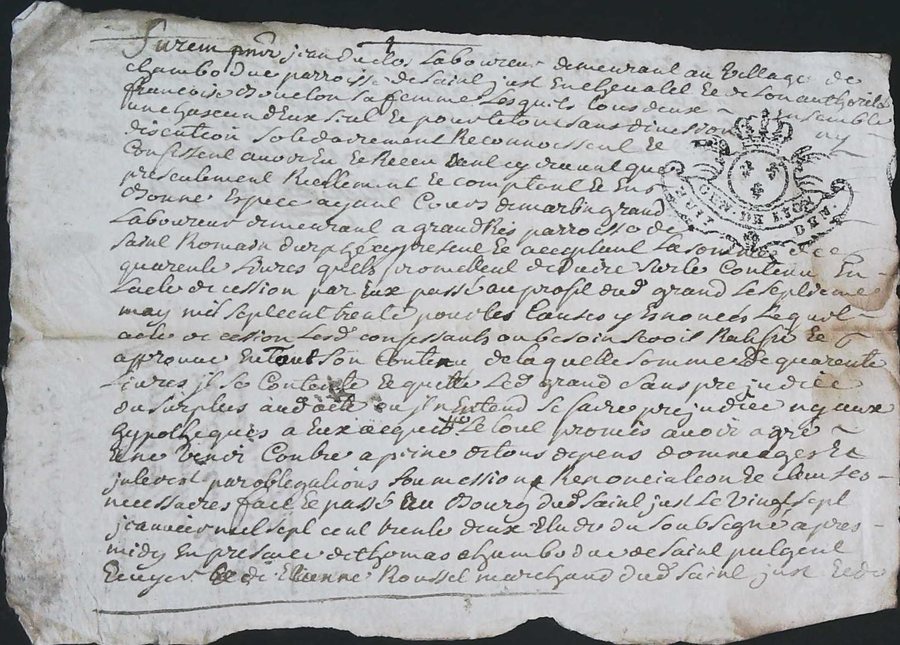 Furem pnt jean duclos Laboureur demeurant au village de
chambodue parroisse de Saint just En chevalet Et de Son authorité
francoise Lesquels tous deux Ensemble
un chascun d'Eux seul Et pour le tout sans division ny
discution Solidairement Reconnoissent Et
Confessent avoir Eu Et Receu
presentement Reellement Et comptant Et En
Bonne Espece ayant Cours de martin grand
Laboureur demeurant a grand parroisse de
Saint Romain durphé present Et acceptant La somme de
quarente Livres quils promettent deduire Sur le Contenu En
Lacte de cession par Eux passé au profit dud grand Le Septieme
may mil sept cent trente pour les Causes y Enoncés Lequel
acte de cession Lesd confessants au besoin
approuve En Tout Son contenu de laquelle Somme de quarente
Livres Se Contente Et quitte Led grand sans prejudice
du Surplus dud acte Entend Se faire prejudice ny aux
hypotheques a Eux acquit Le tout promis avoir agré
Ne venir Contre a peine de tous depens dommages Et
interest par obligations Soumission Renonciation Et clauses
necessaires fait Et passé Au Bourg dud Saint just Le vingt sept
jeanvier mil sept cent trente deux Etude du Soubsigné apres
midy En presence de thomas chambodue de Saint pulgent
Ecuyer de Etienne Roussel marchand dud Saint just
GEN. DE LYON
HUIT DEN